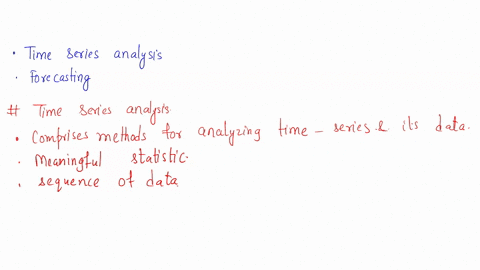 • Time series analysis
• Forecasting
# Time series analysis.
• Comprises methods for analyzing time - series & its data.
• Meaningful statistic.
• sequence of data